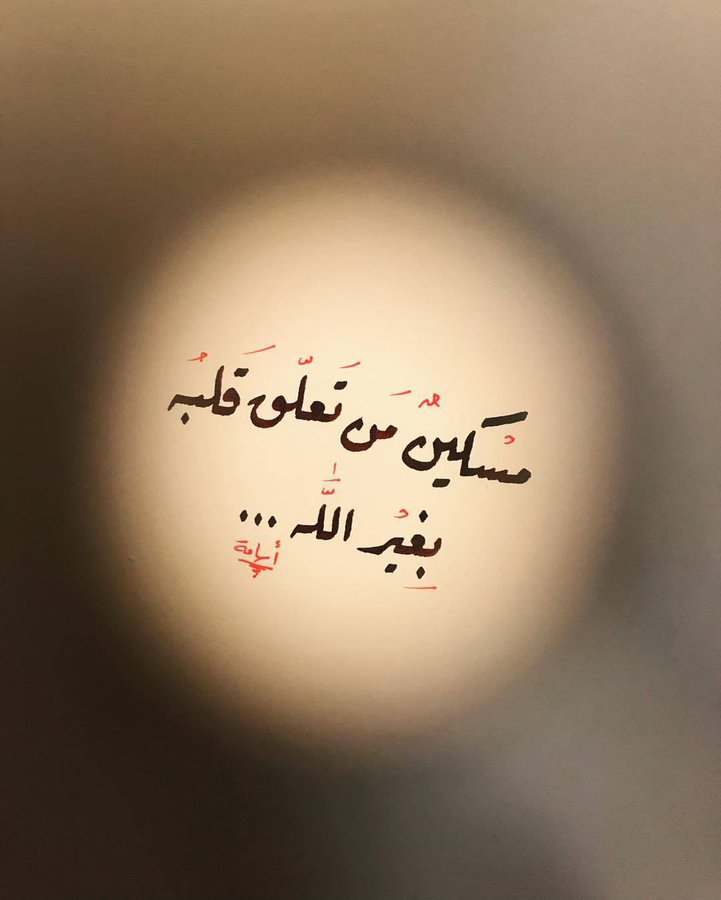 مسْكينٌ مَن تَعلّقَ قَلبُه
بِغيْر اللَّه ...